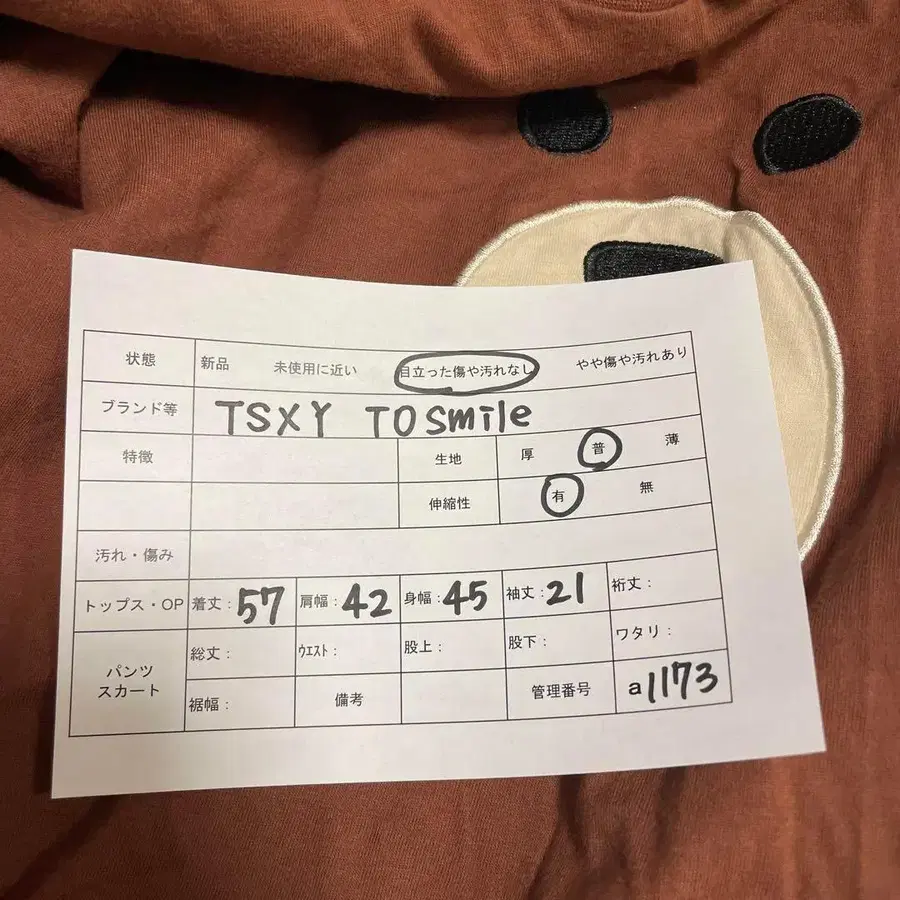 状態 新品 未使用に近い 目立った傷や汚れなし やや傷や汚れあり
ブランド等 TSXY TO smile
特徴 生地 厚 普 薄
伸縮性 有 無
汚れ・傷み
トップス・OP 着丈：57 肩幅：42 身幅：45 袖丈：21 裄丈：
パンツ スカート 総丈： ウエスト： 股上： 股下： ワタリ：
裾幅： 備考 管理番号 a1173